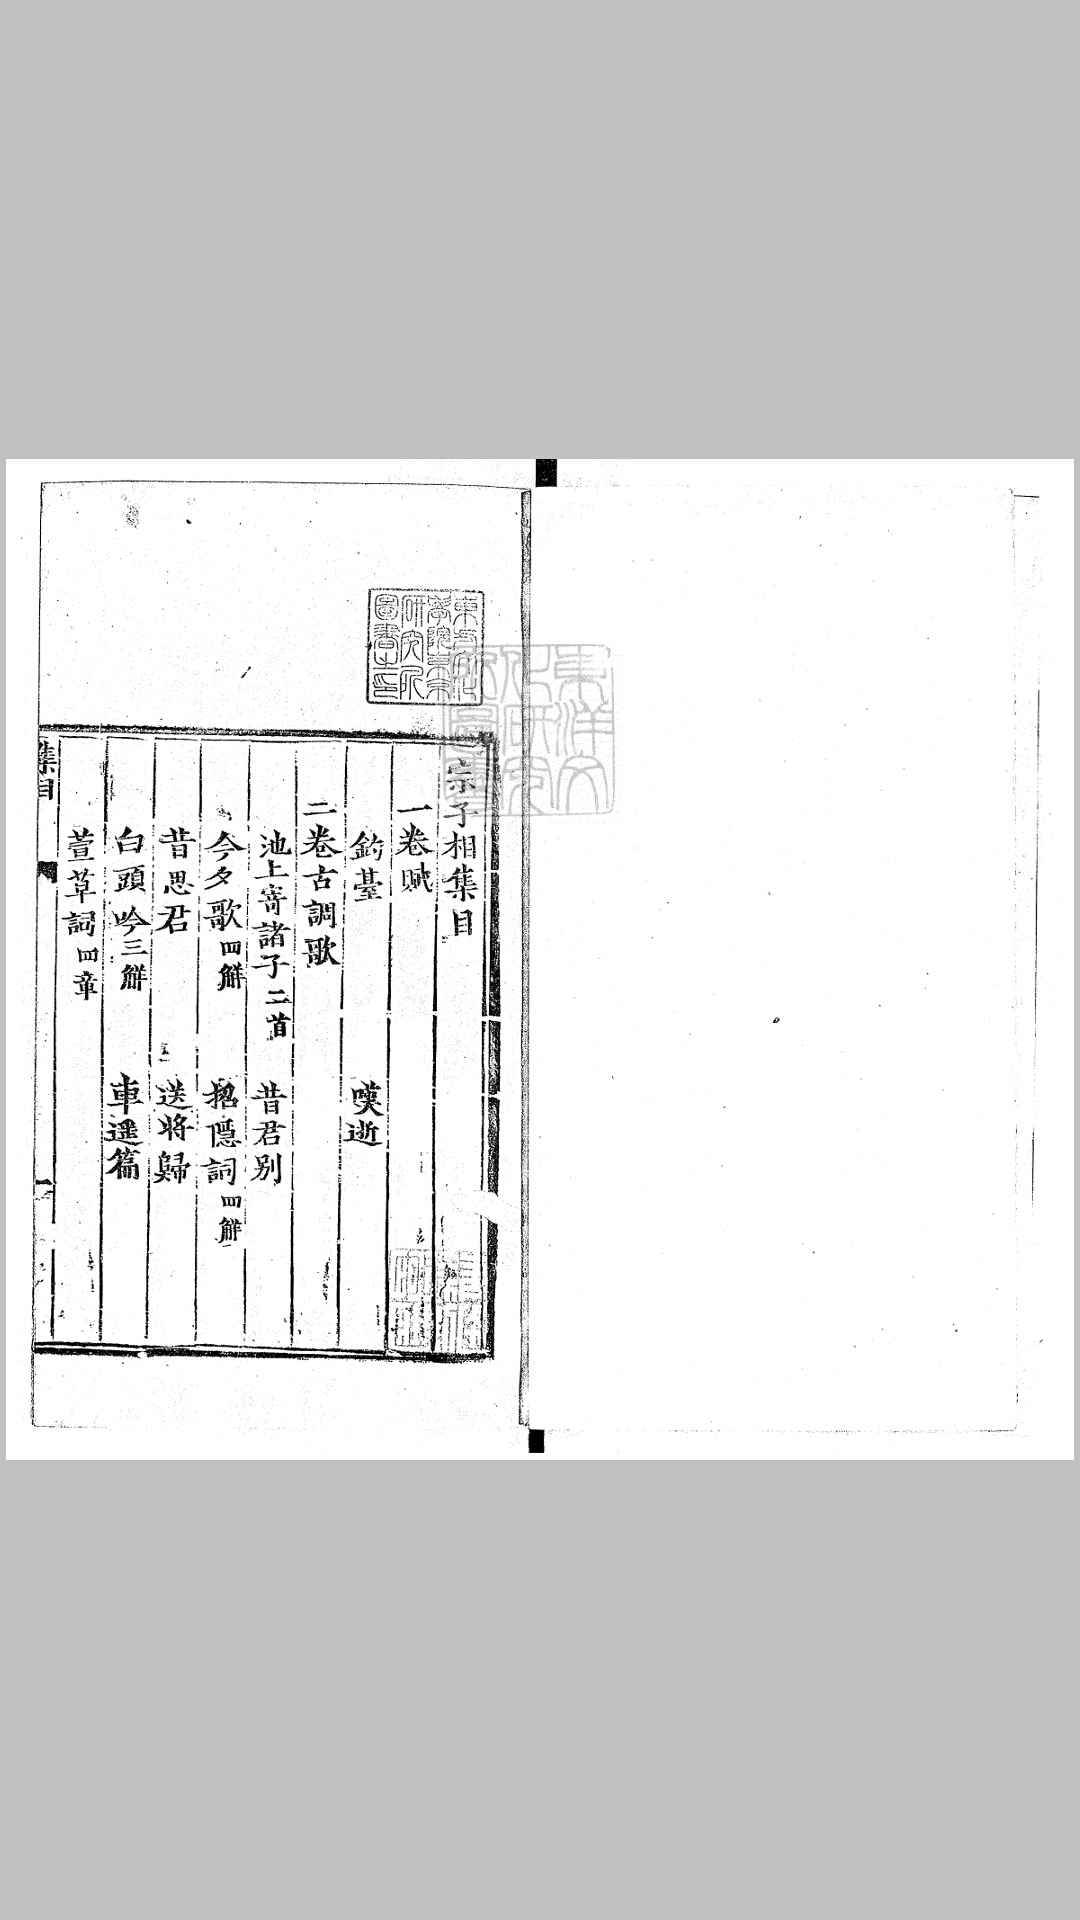 宗子相集目
一卷賦
釣臺 嘆逝
二卷古調歌
池上寄諸子二首 昔君别
今夕歌四觧 招隱詞四觧
昔思君 送將歸
白頭吟三觧 車遥篇
萱草詞四章
集目
一
東方文化學院京都研究所圖書之印